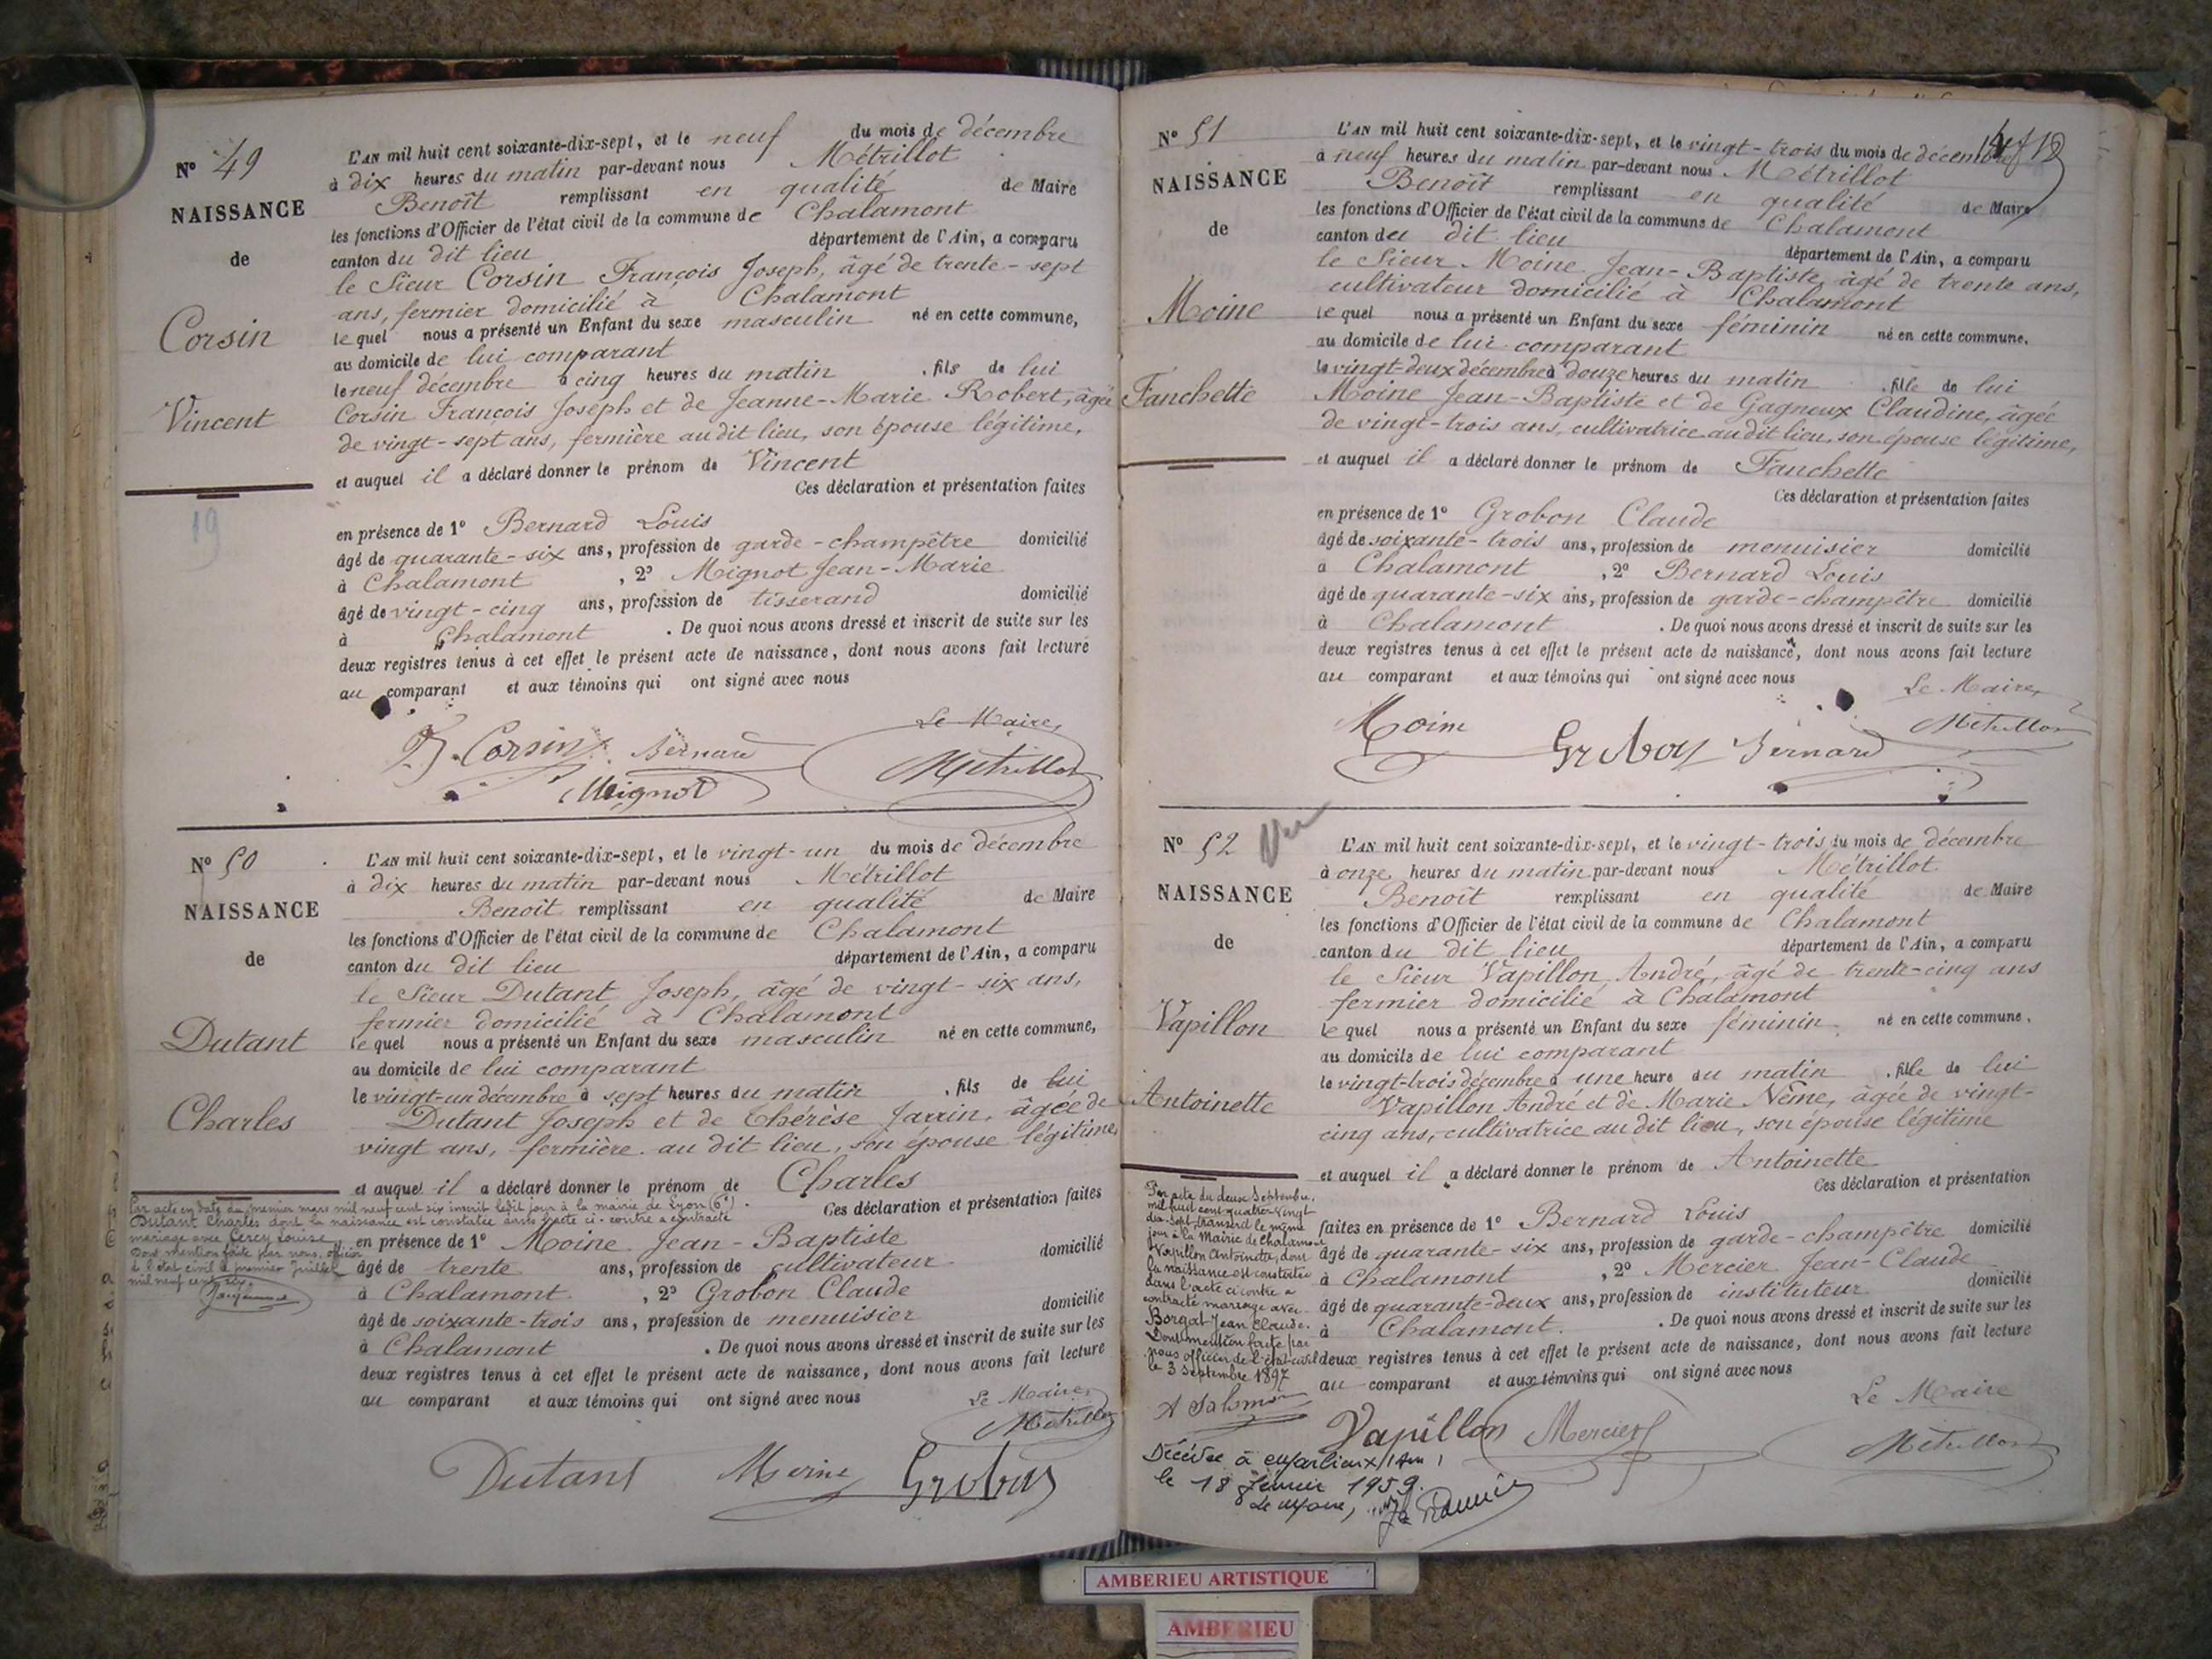 N° 49
NAISSANCE
de
Corsin
Vincent
19
L'AN mil huit cent soixante-dix-sept, et le neuf du mois de décembre
à dix heures du matin par-devant nous Métrillot
Benoît remplissant en qualité de Maire
les fonctions d'Officier de l'état civil de la commune de Chalamont
canton du dit lieu département de l'Ain, a comparu
le Sieur Corsin François Joseph, âgé de trente-sept
ans, fermier domicilié à Chalamont
lequel nous a présenté un Enfant du sexe masculin né en cette commune,
au domicile de lui comparant
le neuf décembre à cinq heures du matin, fils de lui
Corsin François Joseph et de Jeanne-Marie Robert, âgée
de vingt-sept ans, fermière audit lieu, son épouse légitime,
et auquel il a déclaré donner le prénom de Vincent
Ces déclaration et présentation faites
en présence de 1° Bernard Louis
âgé de quarante-six ans, profession de garde-champêtre domicilié
à Chalamont, 2° Mignot Jean-Marie
âgé de vingt-cinq ans, profession de tisserand domicilié
à Chalamont. De quoi nous avons dressé et inscrit de suite sur les
deux registres tenus à cet effet le présent acte de naissance, dont nous avons fait lecture
au comparant et aux témoins qui ont signé avec nous
Le Maire,
Corsin Bernard Métrillot
Mignot
N° 50
NAISSANCE
de
Dutant
Charles
L'AN mil huit cent soixante-dix-sept, et le vingt-un du mois de décembre
à dix heures du matin par-devant nous Métrillot
Benoît remplissant en qualité de Maire
les fonctions d'Officier de l'état civil de la commune de Chalamont
canton du dit lieu département de l'Ain, a comparu
le Sieur Dutant Joseph, âgé de vingt-six ans,
fermier domicilié à Chalamont
lequel nous a présenté un Enfant du sexe masculin né en cette commune,
au domicile de lui comparant
le vingt-un décembre à sept heures du matin, fils de lui
Dutant Joseph et de Thérèse Jarrin, âgée de
vingt ans, fermière au dit lieu, son épouse légitime,
et auquel il a déclaré donner le prénom de Charles
Ces déclaration et présentation faites
en présence de 1° Moine Jean-Baptiste
âgé de trente ans, profession de cultivateur domicilié
à Chalamont, 2° Grobon Claude
âgé de soixante-trois ans, profession de menuisier domicilié
à Chalamont. De quoi nous avons dressé et inscrit de suite sur les
deux registres tenus à cet effet le présent acte de naissance, dont nous avons fait lecture
au comparant et aux témoins qui ont signé avec nous
Le Maire,
Métrillot
Dutant Moine Grobon
Par acte en date du premier mars mil neuf cent six inscrit ledit jour à la mairie de Lyon (6e)
Dutant Charles dont la naissance est constatée dans l'acte ci-contre a contracté
mariage avec Cercy Louise
Dont mention faite par nous, officier
de l'état civil le premier Juillet
mil neuf cent six.
N° 51
NAISSANCE
de
Moine
Fanchette
L'AN mil huit cent soixante-dix-sept, et le vingt-trois du mois de décembre
à neuf heures du matin par-devant nous Métrillot
Benoît remplissant en qualité de Maire
les fonctions d'Officier de l'état civil de la commune de Chalamont
canton du dit lieu département de l'Ain, a comparu
le Sieur Moine Jean-Baptiste, âgé de trente ans,
cultivateur domicilié à Chalamont
lequel nous a présenté un Enfant du sexe féminin né en cette commune,
au domicile de lui comparant
le vingt-deux décembre à douze heures du matin, fille de lui
Moine Jean-Baptiste et de Gagneux Claudine, âgée
de vingt-trois ans, cultivatrice audit lieu, son épouse légitime,
et auquel il a déclaré donner le prénom de Fanchette
Ces déclaration et présentation faites
en présence de 1° Grobon Claude
âgé de soixante-trois ans, profession de menuisier domicilié
à Chalamont, 2° Bernard Louis
âgé de quarante-six ans, profession de garde-champêtre domicilié
à Chalamont. De quoi nous avons dressé et inscrit de suite sur les
deux registres tenus à cet effet le présent acte de naissance, dont nous avons fait lecture
au comparant et aux témoins qui ont signé avec nous
Le Maire,
Moine Métrillot
Grobon Bernard
N° 52
NAISSANCE
de
Vapillon
Antoinette
Vu
L'AN mil huit cent soixante-dix-sept, et le vingt-trois du mois de décembre
à onze heures du matin par-devant nous Métrillot
Benoît remplissant en qualité de Maire
les fonctions d'Officier de l'état civil de la commune de Chalamont
canton du dit lieu département de l'Ain, a comparu
le Sieur Vapillon André, âgé de trente-cinq ans
fermier domicilié à Chalamont
lequel nous a présenté un Enfant du sexe féminin né en cette commune,
au domicile de lui comparant
le vingt-trois décembre à une heure du matin, fille de lui
Vapillon André et de Marie Nême, âgée de vingt-
cinq ans, cultivatrice au dit lieu, son épouse légitime
et auquel il a déclaré donner le prénom de Antoinette
Ces déclaration et présentation
faites en présence de 1° Bernard Louis
âgé de quarante-six ans, profession de garde-champêtre domicilié
à Chalamont, 2° Mercier Jean-Claude
âgé de quarante-deux ans, profession de instituteur domicilié
à Chalamont. De quoi nous avons dressé et inscrit de suite sur les
deux registres tenus à cet effet le présent acte de naissance, dont nous avons fait lecture
au comparant et aux témoins qui ont signé avec nous
Le Maire
Vapillon Mercier Métrillot
Par acte du deux Septembre,
mil huit cent quatre-vingt
dix-sept, transcrit le même
jour à la Mairie de Chalamont
Vapillon Antoinette, dont
la naissance est constatée
dans l'acte ci contre a
contracté mariage avec
Borgat Jean Claude.
Dont mention faite par
nous officier de l'état-civil
le 3 Septembre 1897
A Salomon
Décédée à Marlieux (Ain)
le 18 Janvier 1959.
Le Maire,
AMBERIEU ARTISTIQUE
AMBERIEU